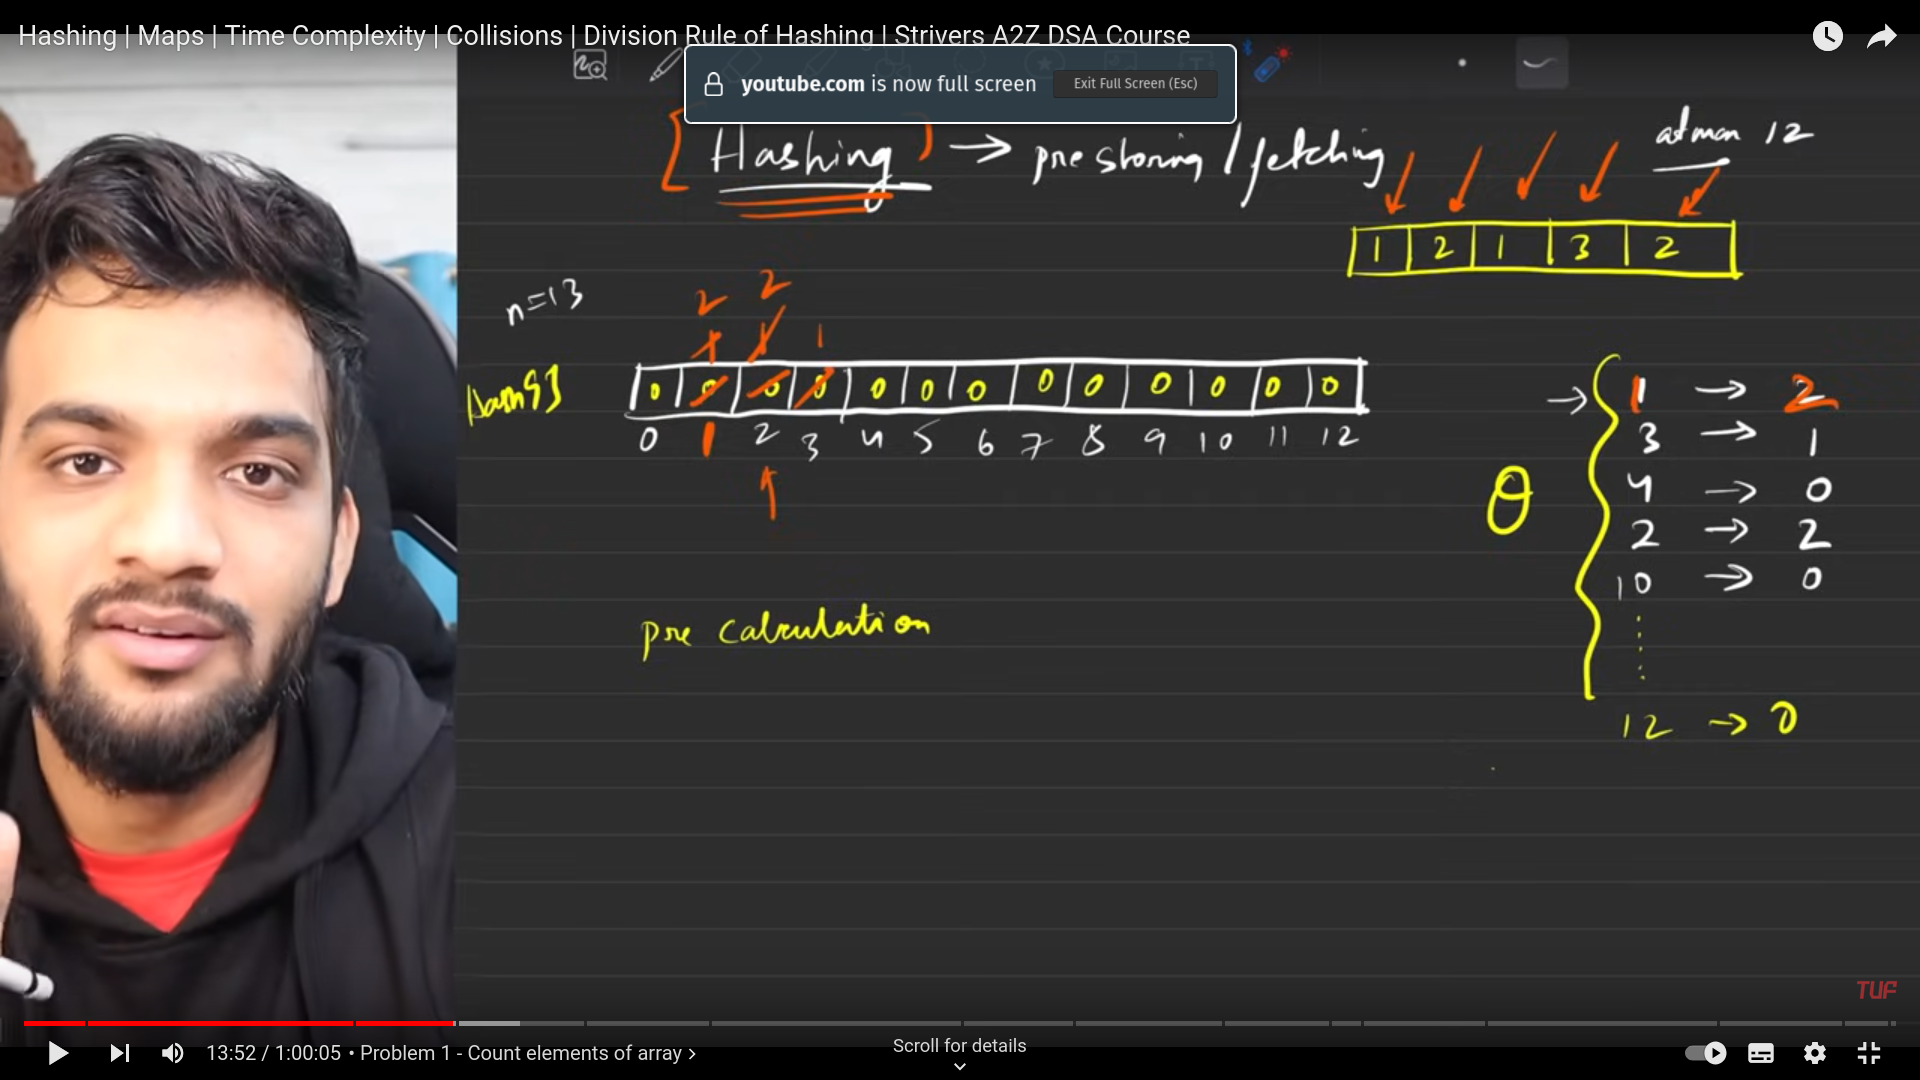 Hashing | Maps | Time Complexity | Collisions | Division Rule of Hashing | Strivers A2Z DSA Course
youtube.com is now full screen
Exit Full Screen (Esc)
Hashing → pre storing / fetching
at max 12
1 2 1 3 2
n=13
2 2
1 1 1
0 0 0 0 0 0 0 0 0 0 0 0 0
0 1 2 3 4 5 6 7 8 9 10 11 12
1 → 2
3 → 1
4 → 0
2 → 2
10 → 0
12 → 0
pre calculation
TUF
13:52 / 1:00:05 • Problem 1 - Count elements of array ›
Scroll for details